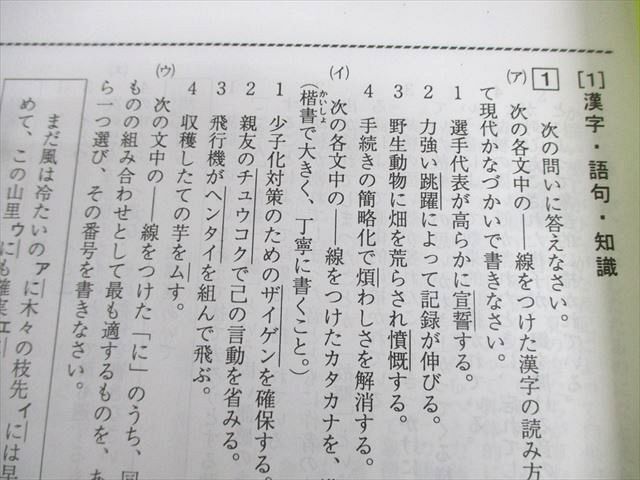 [1] 漢字・語句・知識
1 次の問いに答えなさい。
(ア) 次の各文中の――線をつけた漢字の読み方
て現代かなづかいで書きなさい。
1 選手代表が高らかに宣誓する。
2 力強い跳躍によって記録が伸びる。
3 野生動物に畑を荒らされ憤慨する。
4 手続きの簡略化で煩わしさを解消する。
(イ) 次の各文中の――線をつけたカタカナを、
(楷書で大きく、丁寧に書くこと。)
かいしょ
1 少子化対策のためのザイゲンを確保する。
2 親友のチュウコクで己の言動を省みる。
3 飛行機がヘンタイを組んで飛ぶ。
4 収穫したての芋をムす。
(ウ) 次の文中の――線をつけた「に」のうち、
ものの組み合わせとして最も適するものを、あ
ら一つ選び、その番号を書きなさい。
まだ風は冷たいのアに木々の枝先ィには早
めて、この山里ゥにも確実ェ